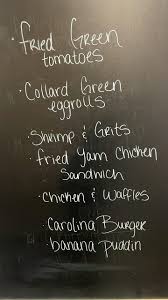 · Fried Green
tomatoes
· Collard Green
eggrolls
· Shrimp & Grits
· fried Yam Chicken
Sandwich
· Chicken & Waffles
· Carolina Burger
· banana Puddin